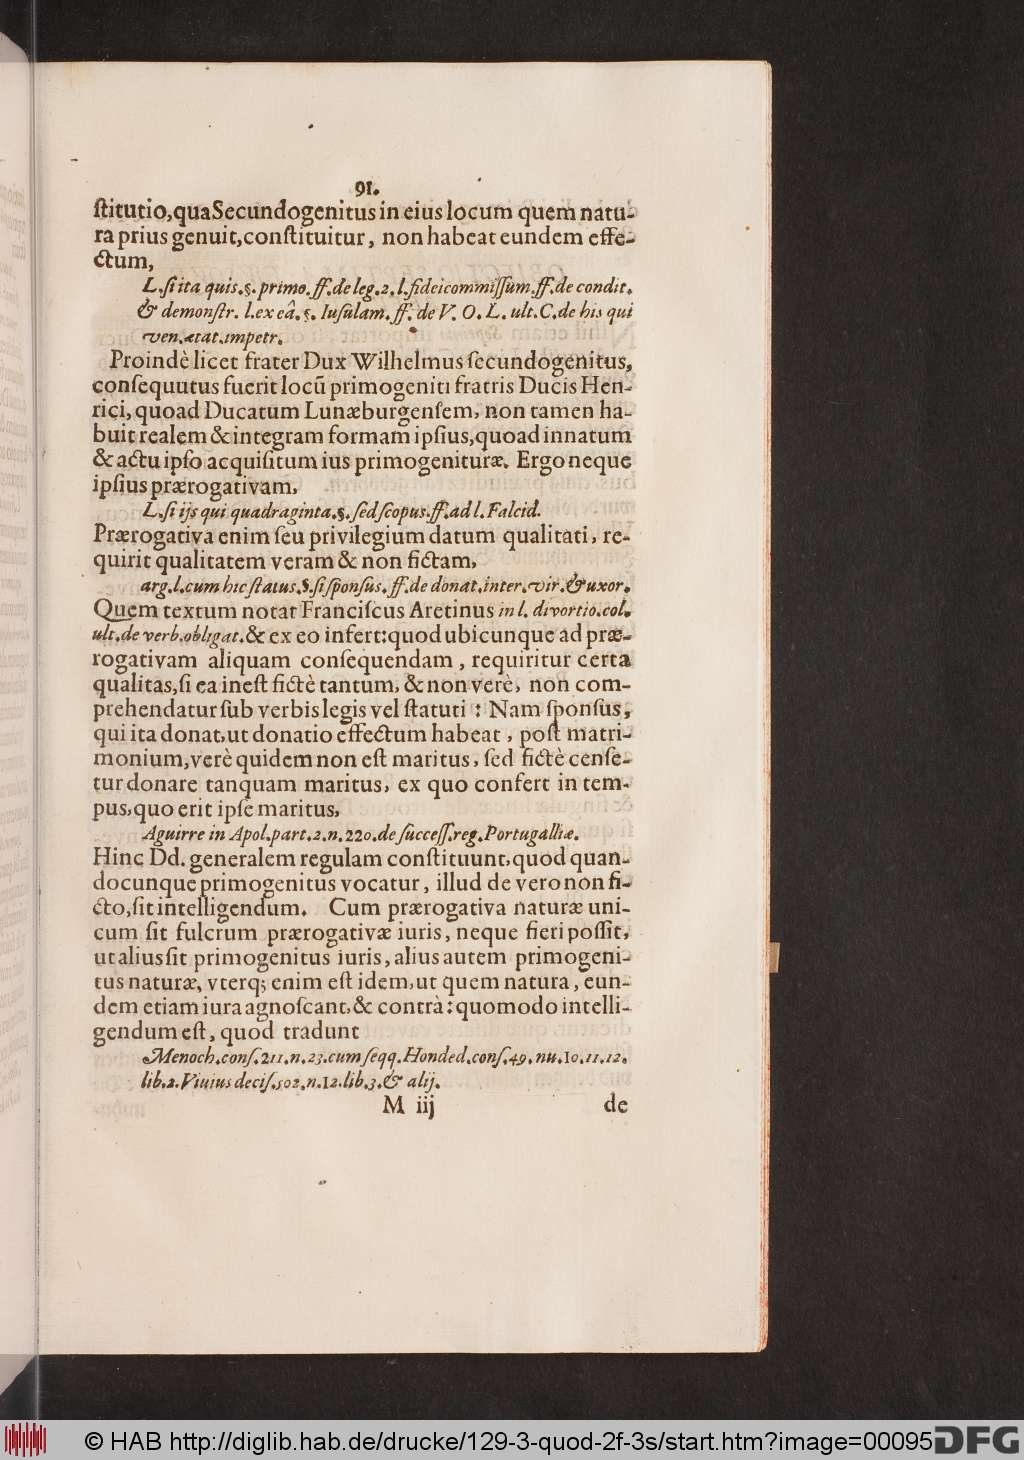 91.
ſtitutio, qua Secundogenitus in eius locum quem natu-
ra prius genuit, conſtituitur, non habeat eundem effe-
ctum,
L. ſi ita quis. §. primo. ff. de leg. 2. l. fideicommiſſum. ff. de condit.
& demonſtr. l. ex eâ. §. Inſulam. ff. de V. O. L. ult. C. de his qui
ven. ætat. impetr.
Proindè licet frater Dux Wilhelmus ſecundogenitus,
conſequutus fuerit locū primogeniti fratris Ducis Hen-
rici, quoad Ducatum Lunæburgenſem, non tamen ha-
buit realem & integram formam ipſius, quoad innatum
& actu ipſo acquiſitum ius primogenituræ. Ergo neque
ipſius prærogativam,
L. ſi ijs qui quadraginta. §. ſed ſcopus. ff. ad l. Falcid.
Prærogativa enim ſeu privilegium datum qualitati, re-
quirit qualitatem veram & non fictam,
arg. l. cum hic ſtatus. §. ſi ſponſus. ff. de donat. inter. vir. & uxor.
Quem textum notat Franciſcus Aretinus in l. divortio. col.
ult. de verb. obligat. & ex eo infert: quod ubicunque ad præ-
rogativam aliquam conſequendam, requiritur certa
qualitas, ſi ea ineſt fictè tantum, & non verè, non com-
prehendatur ſub verbis legis vel ſtatuti: Nam ſponſus,
qui ita donat, ut donatio effectum habeat, poſt matri-
monium, verè quidem non eſt maritus, ſed fictè cenſe-
tur donare tanquam maritus, ex quo confert in tem-
pus, quo erit ipſe maritus,
Aguirre in Apol. part. 2. n. 220. de ſucceſſ. reg. Portugalliæ.
Hinc Dd. generalem regulam conſtituunt, quod quan-
docunque primogenitus vocatur, illud de vero non fi-
cto, ſit intelligendum. Cum prærogativa naturæ uni-
cum ſit fulcrum prærogativæ iuris, neque fieri poſſit,
ut alius ſit primogenitus iuris, alius autem primogeni-
tus naturæ, vterq; enim eſt idem, ut quem natura, eun-
dem etiam iura agnoſcant, & contrà: quomodo intelli-
gendum eſt, quod tradunt
Menoch. conſ. 211. n. 23. cum ſeqq. Honded. conſ. 49. nu. 10. 11. 12.
lib. 2. Viuius deciſ. 502. n. 12. lib. 3. & alij.
M iij de
© HAB http://diglib.hab.de/drucke/129-3-quod-2f-3s/start.htm?image=00095
DFG